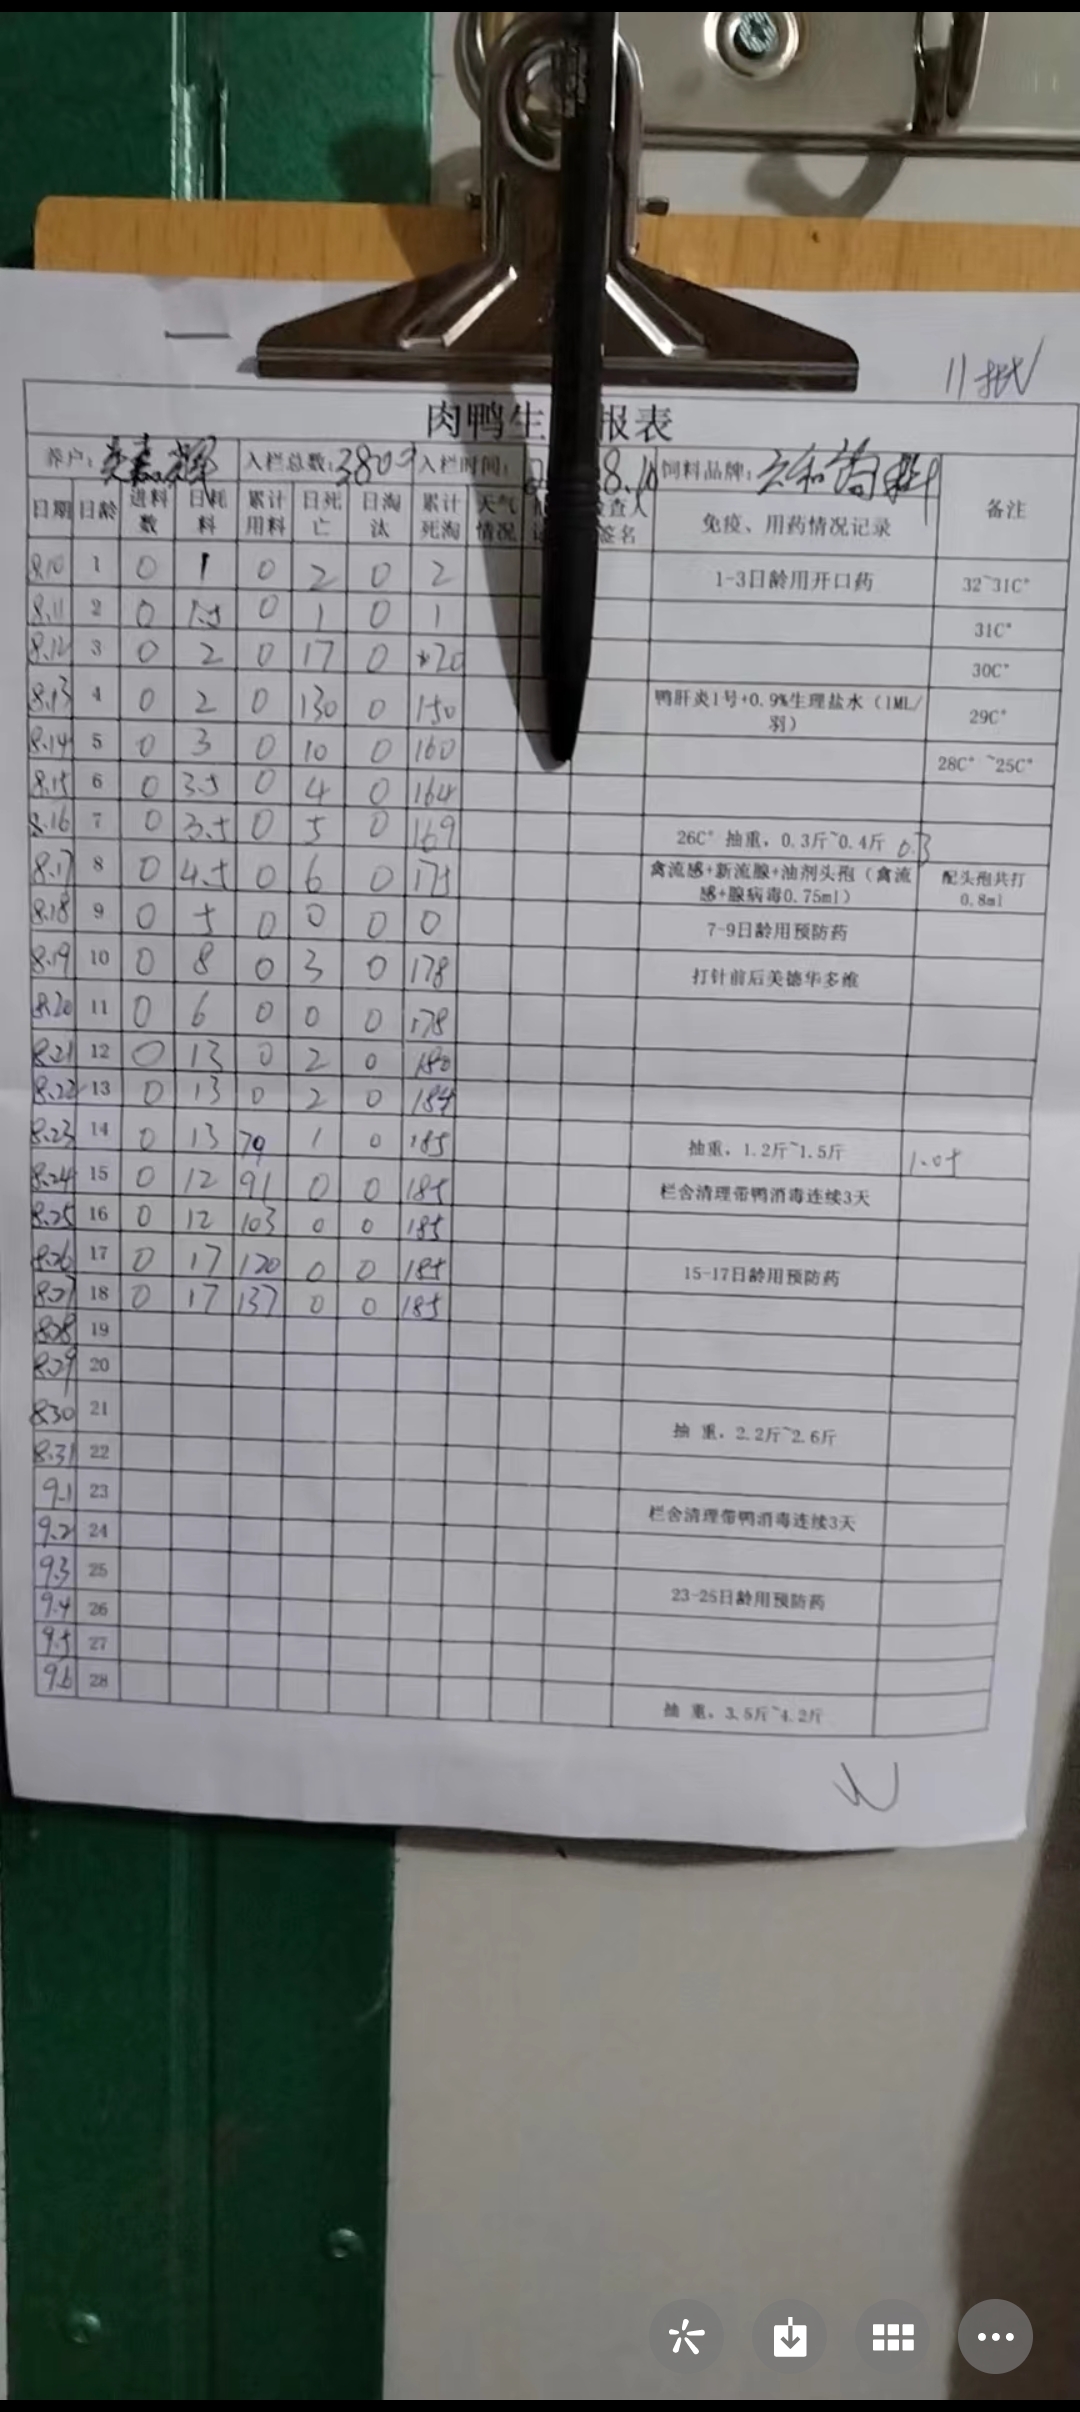 11批
肉鸭生 报表
养户: 入栏总数:3800 入栏时间: 8.10 饲料品牌:
日期 日龄 进料数 日耗料 累计用料 日死亡 日淘汰 累计死淘 天气情况 签名 免疫、用药情况记录 备注
8.10 1 0 1 0 2 0 2 1-3日龄用开口药 32~31C°
8.11 2 0 1.5 0 1 0 1 31C°
8.12 3 0 2 0 17 0 20 30C°
8.13 4 0 2 0 130 0 150 鸭肝炎1号+0.9%生理盐水（1ML/羽） 29C°
8.14 5 0 3 0 10 0 160 28C° ~25C°
8.15 6 0 3.5 0 4 0 164
8.16 7 0 3.5 0 5 0 169 26C° 抽重，0.3斤~0.4斤 0.3
8.17 8 0 4.5 0 6 0 175 禽流感+新流腺+油剂头孢（禽流感+腺病毒0.75ml） 配头孢共打0.8ml
8.18 9 0 5 0 0 0 0 7-9日龄用预防药
8.19 10 0 8 0 3 0 178 打针前后美德华多维
8.20 11 0 6 0 0 0 178
8.21 12 0 13 0 2 0 180
8.22 13 0 13 0 2 0 184
8.23 14 0 13 79 1 0 185 抽重，1.2斤~1.5斤 1.05
8.24 15 0 12 91 0 0 185 栏舍清理带鸭消毒连续3天
8.25 16 0 12 103 0 0 185
8.26 17 0 17 120 0 0 185 15-17日龄用预防药
8.27 18 0 17 137 0 0 185
8.28 19
8.29 20
8.30 21 抽 重，2.2斤~2.6斤
8.31 22
9.1 23 栏舍清理带鸭消毒连续3天
9.2 24
9.3 25 23-25日龄用预防药
9.4 26
9.5 27
9.6 28 抽 重，3.5斤~4.2斤